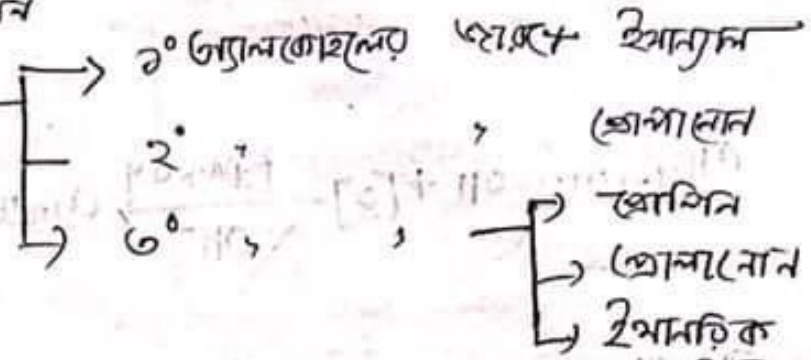 ন
১° অ্যালকোহলের জারণে ইথান্যাল
২° " " প্রোপানোন
৩° " "
প্রোপিন
প্রোপানোন
ইথানয়িক